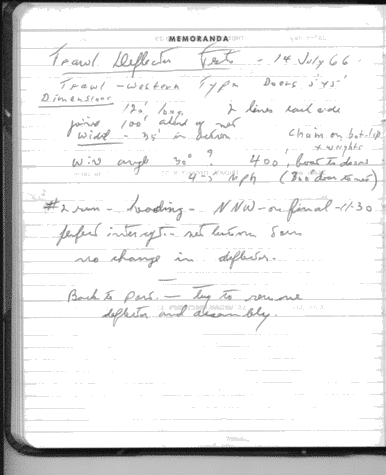 MEMORANDA
Trawl Deflector Tests - 14 July 66
Trawl - Western Type Doors 5'x5'
Dimensions
120' long 2 lines each side
joins 100' ahead of net
Wide - 35' in action Chain on bot-lip
+ weights
Wire angle 30° ? 400', boat to doors
4-5 mph (800 door to net)
#2 run - heading - NNW - on final - 11-30
perfect intercept. - net between doors
no change in deflector.
Back to port. - try to remove
deflector and disassembly.